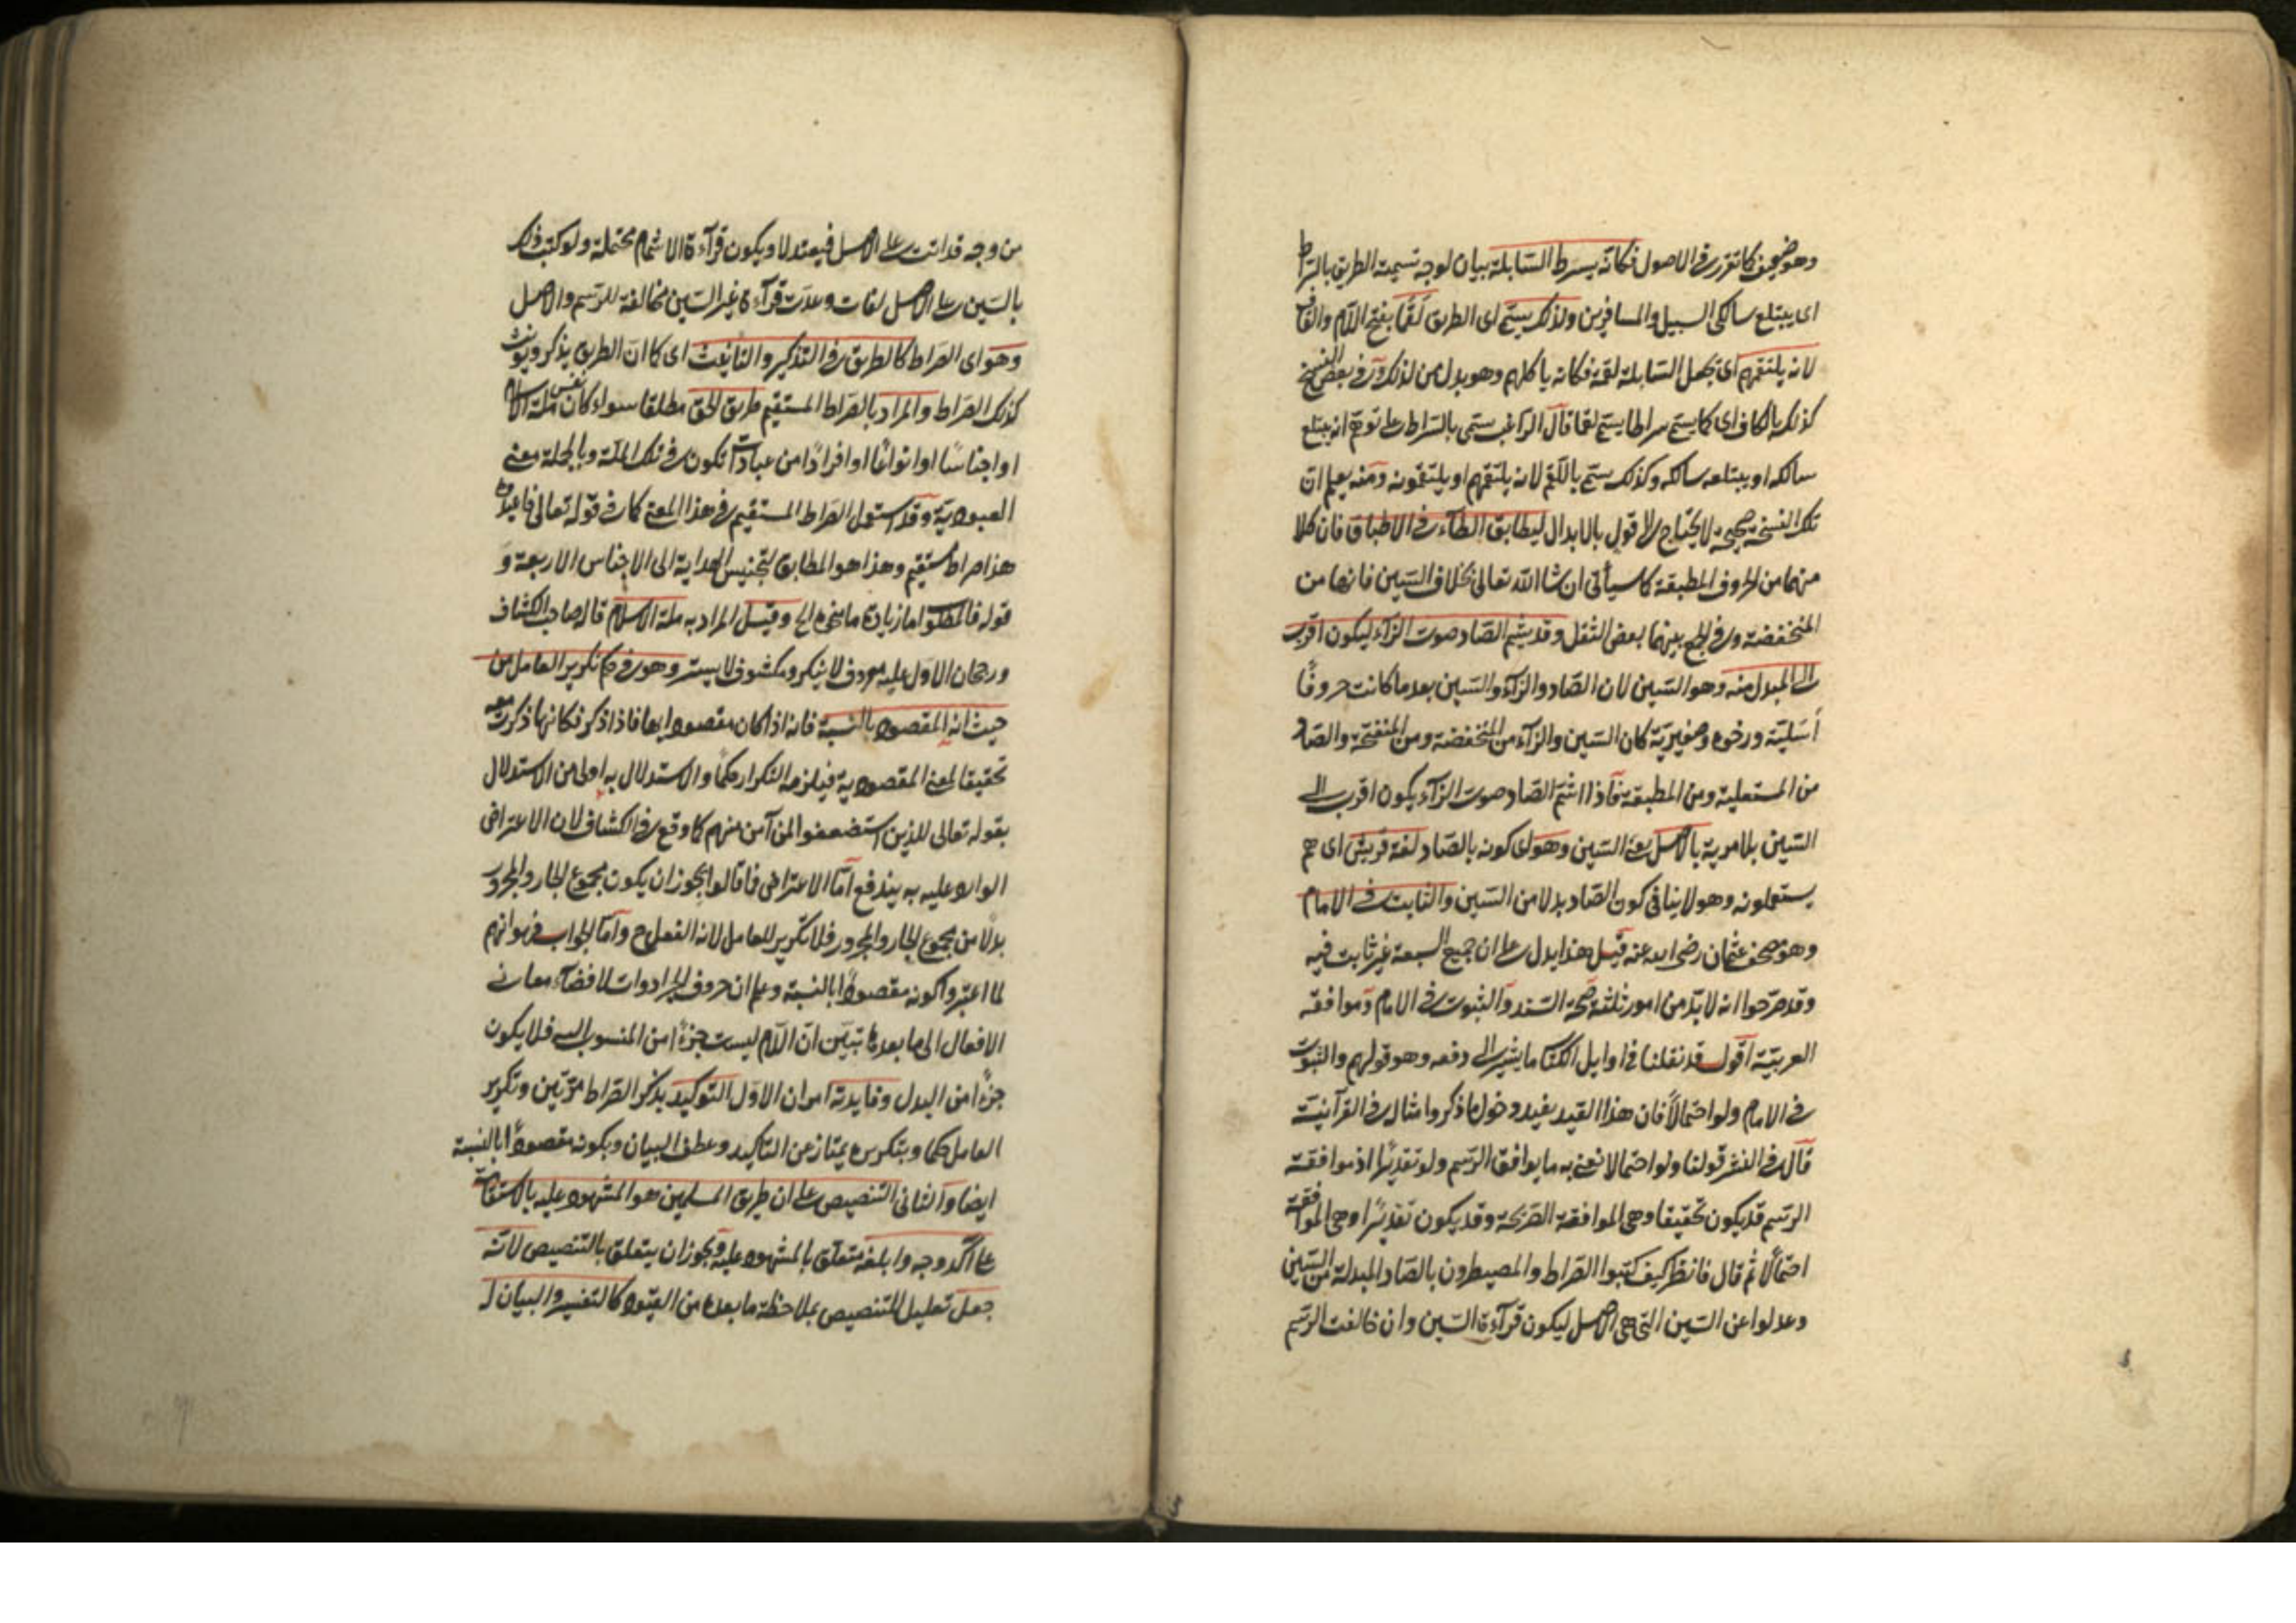 وهو ضعيف كما تقرر فى الاصول فكانه يسرط السابلة بيان لوجه تسمية الطريق بالسراط
اى يبتلع سالكى السبيل والمسافرين ولذلك يسمى اى الطريق لَقَما بفتح اللام والقاف
لانه يلتقمهم اى يجعل السابلة لقمة فكانه ياكلهم وهو بدل من لذلك وَفى بعض النسخ
كذلك بالكاف اى كما يسمى سراطا يسمى لقما قال الراغب سمى بالسراط على توهم انه يبتلع
سالكه او يبتلعه سالكه وكذلك سمى باللقم لانه يلتقمهم او يلتقمونه ومنه يعلم ان
تلك النسخة صحيحة لا يحتاج الا قول بالابدال ليطابق الطاء فى الاطباق فان كلا
منهما من الحروف المطبقة كما سيأتى ان شا الله تعالى بخلاف السين فانها من
المنخفضة وفى الجمع بينهما بعض الثقل وقد يشم الصاد صوت الزاء ليكون اقرب
الى المبدل منه وهو السين لان الصاد والزاء والسين بعد ما كانت حروفًا
أسَليّة ورخوة وصفيرية كان السين والزآء من المنخفضة ومن المنفتحة والصاد
من المستعلية ومن المطبقة فاذا اشمّ الصاد صوت الزآء يكون اقرب الى
السّين بلا مرية بالاصل يعنى السين وهو اى كونه بالصاد لغة قريش اى هم
يستعملونه وهو لا ينافى كون الصاد بدلا من السين والثابت فى الامام
وهو مصحف عثمان رضى الله عنه قيل هذا يدل على ان جميع السبعة غير ثابت فيه
وقد صرّحوا انه لا بدّ من امور ثلثة صحة السند والثبوت فى الامام وموافقة
العربيّة اقول قد نقلنا فى اوايل الكتاب ما يشير الى دفعه وهو قولهم والثبوت
فى الامام ولو احتمالًا فان هذا القيد يفيد دخول ما ذكر وامثاله فى القرآنيّة
قال فى النشر قولنا ولو احتمالا نعنى به ما يوافق الرسم ولو تقديرًا اذ موافقة
الرسم قد يكون تحقيقا وهى الموافقة الصريحة وقد يكون تقديرًا وهى الموافقة
احتمالًا ثم قال فانظر كيف كتبوا الصراط والمصيطرون بالصاد المبدلة من السّين
وعدلوا عن السّين التى هى الاصل ليكون قرآءة السّين وان خالفت الرسم
من وجه قد اتت على الاصل فيعتدلا ويكون قرآءة الاشمام محتملة ولو كتب ذلك
بالسّين على الاصل لفات وعدت قرآءة غير السّين مخالفة للرسم والاصل
وهو اى الصراط كالطريق فى التذكير والتانيث اى كما ان الطريق يذكر ويونث
كذلك الصراط والمراد بالصراط المستقيم طريق الحق مطلقا سواء كان نفس ملة الاسلام
او اجناسًا او انواعًا او افرادًا من عبادات تكون فى تلك الملّة وبالجملة معنى
العبودية وقد استعمل الصراط المستقيم فى هذا المعنى كما فى قوله تعالى فاعبدوه
هذا صراط مستقيم وهذا هو المطابق لتجنيس الهداية الى الاجناس الاربعة و
قوله فالمطلوب اما زيادة ما منحوه الخ وقيل المراد به ملة الاسلام قاله صاحب الكشاف
ورجحان الاول عليه معروف لا ينكر ومكشوف لا يستر وهو فى حكم تكرير العامل من
حيث انه المقصود بالنسبة فانه اذا كان مقصودا بها فاذا ذكر فكانها ذكرت معه
تحقيقا لمعنى المقصودية فيلزمه التكرار حكمًا والاستدلال به اولى من الاستدلال
بقوله تعالى للذين استضعفوا لمن آمن منهم كما وقع فى الكشاف لان الاعتراض
الوارد عليه به يندفع امّا الاعتراض فما قالوا يجوز ان يكون مجموع الجار والمجرور
بدلًا من مجموع الجار والمجرور فلا تكرير للعامل لانه الفعل ح وامّا الجواب فهو انهم
لما اعتبروا كونه مقصودًا بالنسبة وعلم ان حروف الجر ادوات لافضآء معانى
الافعال الى ما بعدها تبيّن انّ اللّام ليست جزءًا من المنسوب اليه فلا يكون
جزءًا من البدل وفايدته امران الاوّل التوكيد بذكر الصراط مرّتين وتكرير
العامل حكما وبتكريره يمتاز عن التاكيد وعطف البيان وبكونه مقصودًا بالنسبة
ايضا والثانى التنصيص على ان طريق المسلمين هو المشهود عليه بالاستقامة
على آكد وجه وابلغه متعلّق بالمشهود عليه ويجوز ان يتعلق بالتنصيص لانّه
جعل تعليل للتنصيص بملاحظة ما بعده من القيود كالتفسير والبيان ل